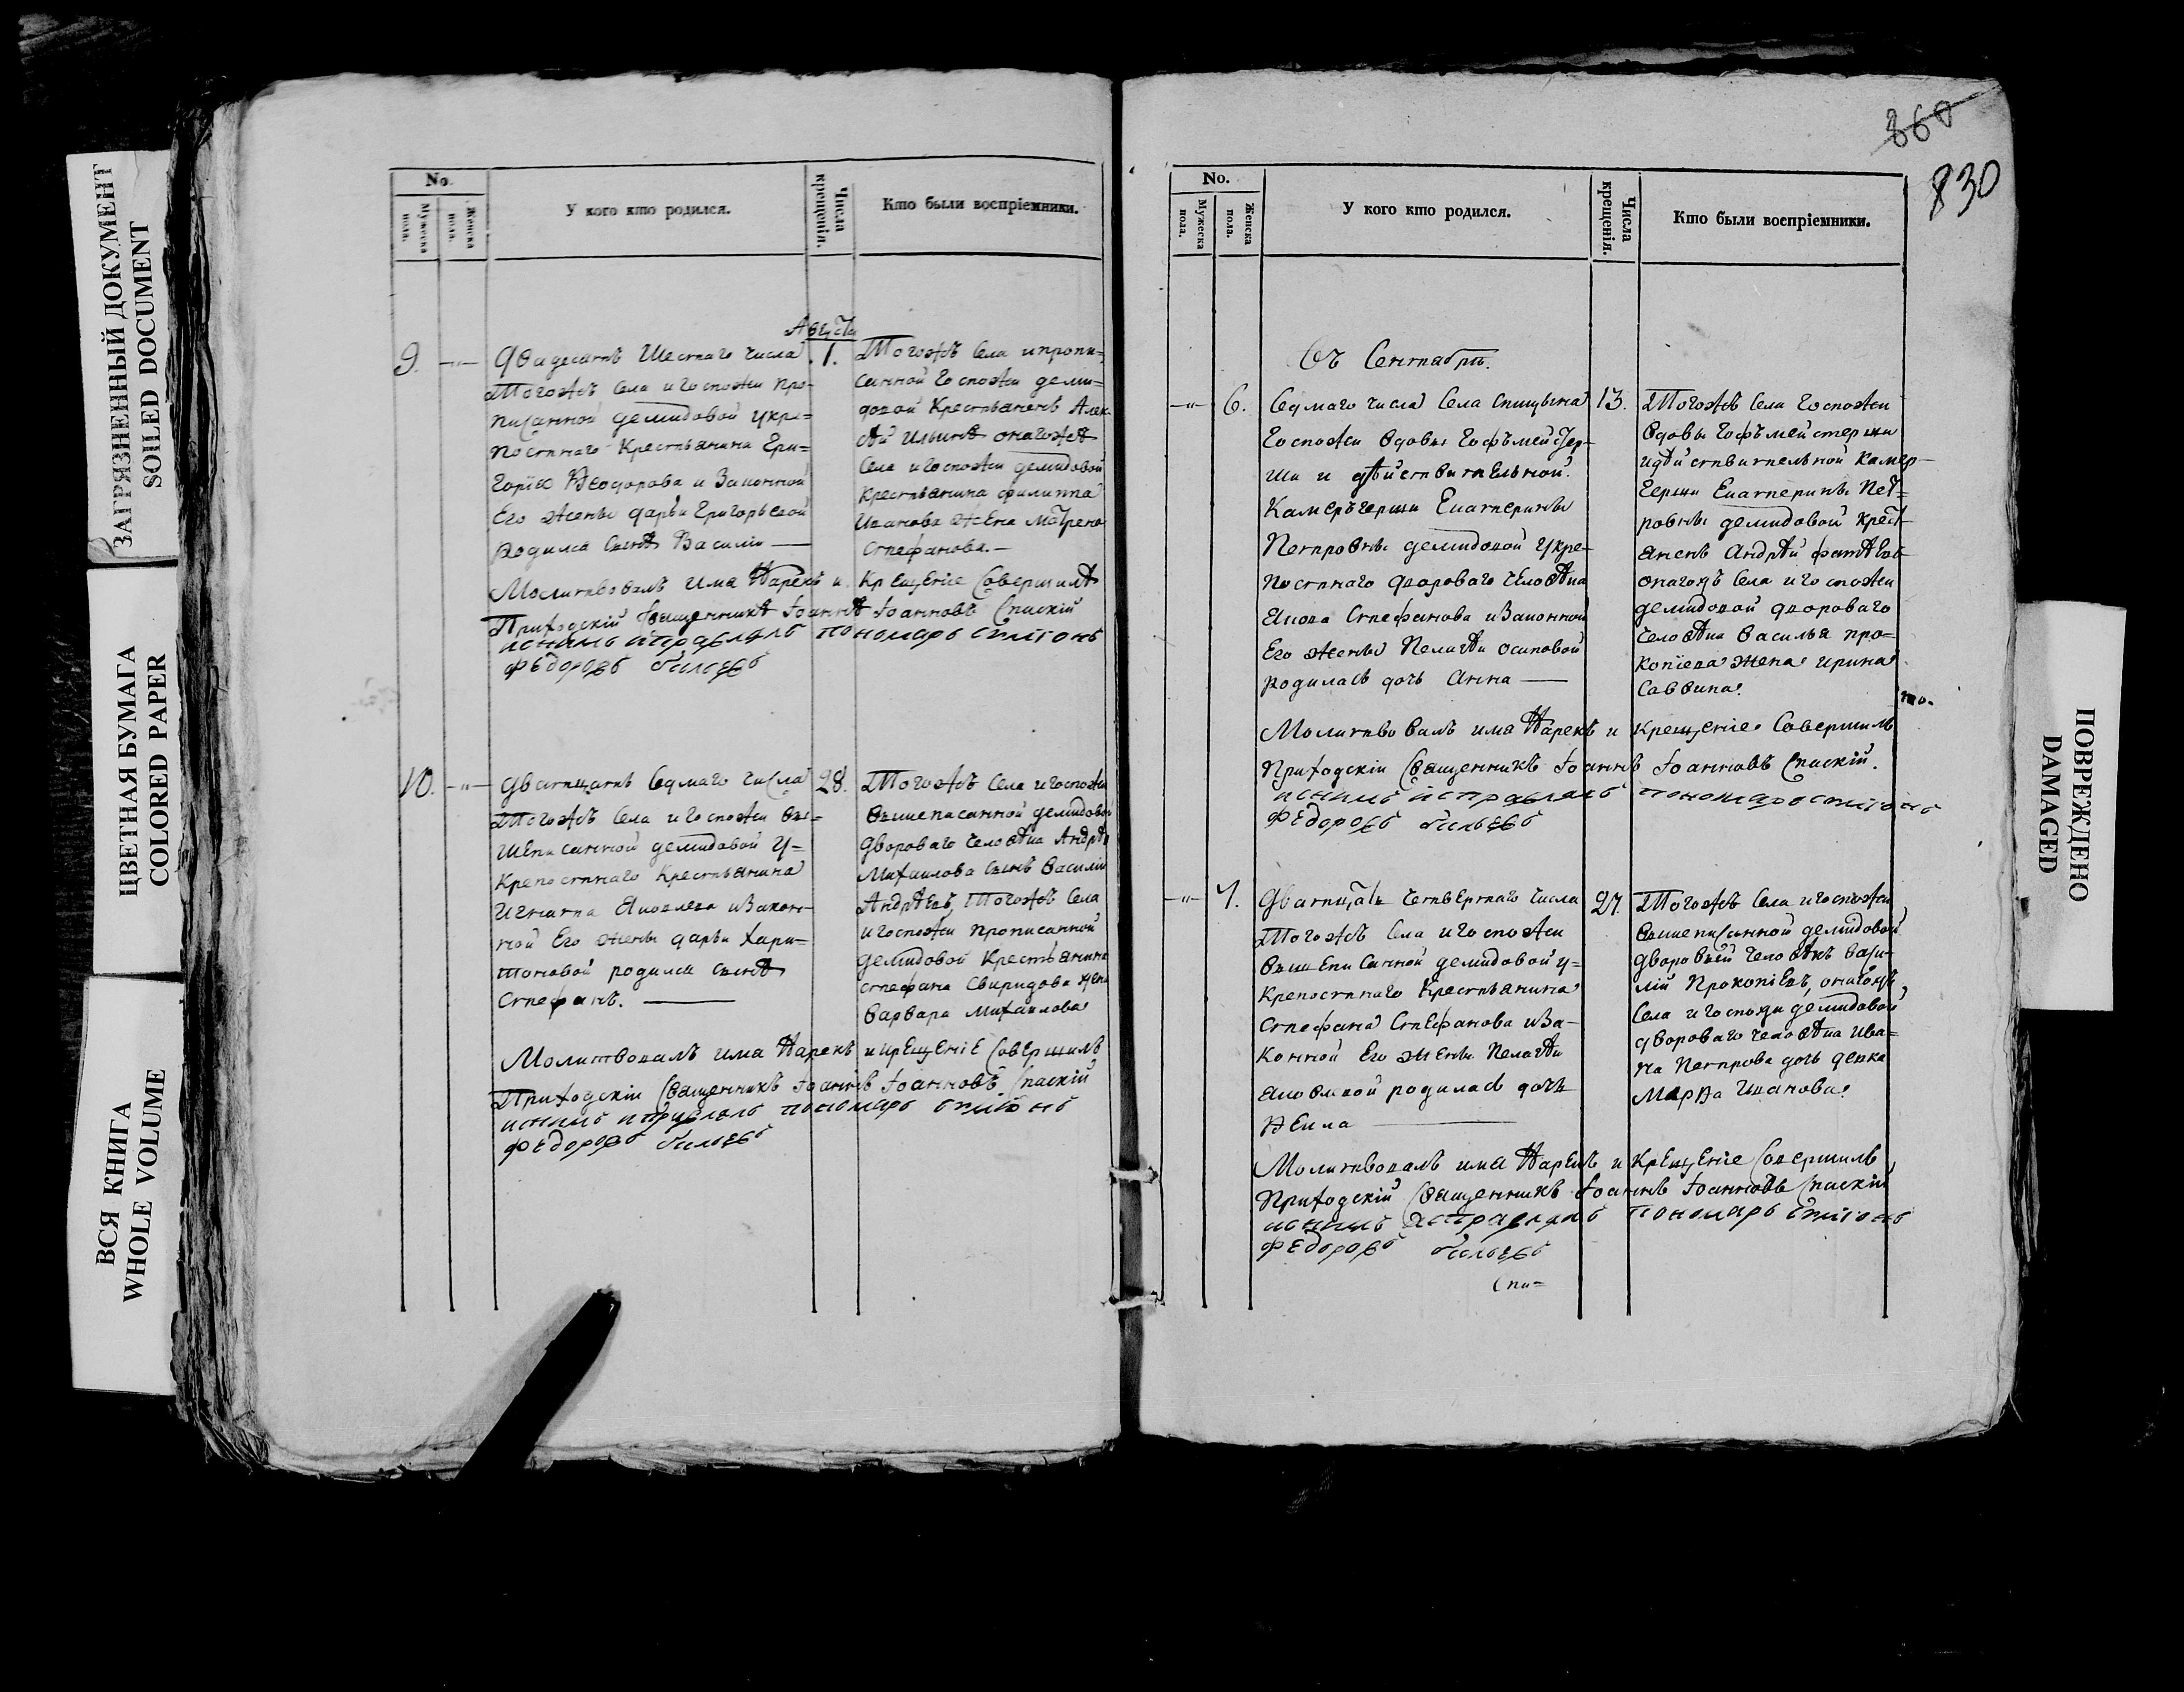 ЗАГРЯЗНЕННЫЙ ДОКУМЕНТ
SOILED DOCUMENT
ЦВЕТНАЯ БУМАГА
COLORED PAPER
ВСЯ КНИГА
WHOLE VOLUME
No.
Мужеска пола.
Женска пола.
У кого кто родился.
Числа крещенія.
Кто были воспріемники.
Августа
9.
Двадесять Шестаго числа
Тогожъ села и госпожи про-
писанной Демидовой укре-
постнаго крестьянина Гри-
горія Ѳеодорова и законной
его жены Дарьи Григорьевой
родился сынъ Василій
1.
Тогожъ села и пропи-
санной госпожи Деми-
довой крестьянинъ Алек-
сѣй Ильинъ онагожъ
села и госпожи Демидовой
крестьянина Филиппа
Иванова жена Матрена
Стефанова.
Молитвовалъ имя нарекъ и крещеніе совершилъ
Приходскій священникъ Іоаннъ Іоанновъ Спаскій
исправлялъ пономарь
Федоровъ
10.
Дватцать седмаго числа
Тогожъ села и госпожи вы-
шеписанной Демидовой у-
крепостнаго крестьянина
Игната Яковлева и закон-
ной его жены Дарьи Хари-
тоновой родился сынъ
Стефанъ.
28.
Тогожъ села и госпожи
вышеписанной Демидовой
двороваго человѣка Андрѣя
Михаилова сынъ Василій
Андрѣевъ, Тогожъ села
и госпожи прописанной
Демидовой крестьянина
Стефана Свиридова жена
Варвара Михаилова
Молитвовалъ имя нарекъ и крещеніе совершилъ
Приходскій священникъ Іоаннъ Іоанновъ Спаскій
пономарь
Федоровъ
860
830
No.
Мужеска пола.
Женска пола.
У кого кто родился.
Числа крещенія.
Кто были воспріемники.
Съ Сентября.
6.
Седмаго числа села Спицына
Госпожи вдовы Гофъмейстер-
ши и дѣйствительной
Камеръгерши Екатерины
Петровны Демидовой укре-
постнаго двороваго человѣка
Якова Стефанова и законной
его жены Пелагѣи Осиповой
родилась дочь Анна
13.
Тогожъ села госпожи
вдовы Гофъмейстерши
и дѣйствительной Камер-
герши Екатерины Пет-
ровны Демидовой крест-
янинъ Андрѣй Фатѣев
онагожъ села и госпожи
Демидовой двороваго
человѣка Василья Про-
копіева жена Ирина
Саввина.
Молитвовалъ имя нарекъ и крещеніе совершилъ
Приходскій священникъ Іоаннъ Іоанновъ Спаскій.
исправлялъ пономарь
Федоровъ
7.
Дватцать четвертаго числа
Тогожъ села и госпожи
вышеписанной Демидовой у-
крепостнаго крестьянина
Стефана Стефанова и за-
конной его жены Пелагѣи
Яковлевой родилась дочь
Ѳекла
27.
Тогожъ села и госпожи
вышеписанной Демидовой
дворовый человѣкъ Васи-
лій Прокопіевъ, онагожъ
села и госпожи Демидовой
двороваго человѣка Ива-
на Петрова дочь девка
Марѳа Иванова.
Молитвовалъ имя нарекъ и крещеніе совершилъ
Приходскій священникъ Іоаннъ Іоанновъ Спаскій
исправлялъ пономарь
Федоровъ
Спи-
ПОВРЕЖДЕНО
DAMAGED